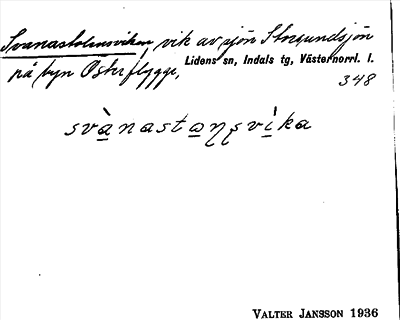 Svanastolmsviken, vik av sjön Storsundsjön
på byn Österflygge, Lidens sn, Indals tg, Västernorrl. l.
348
svànastαηsvìka
VALTER JANSSON 1936